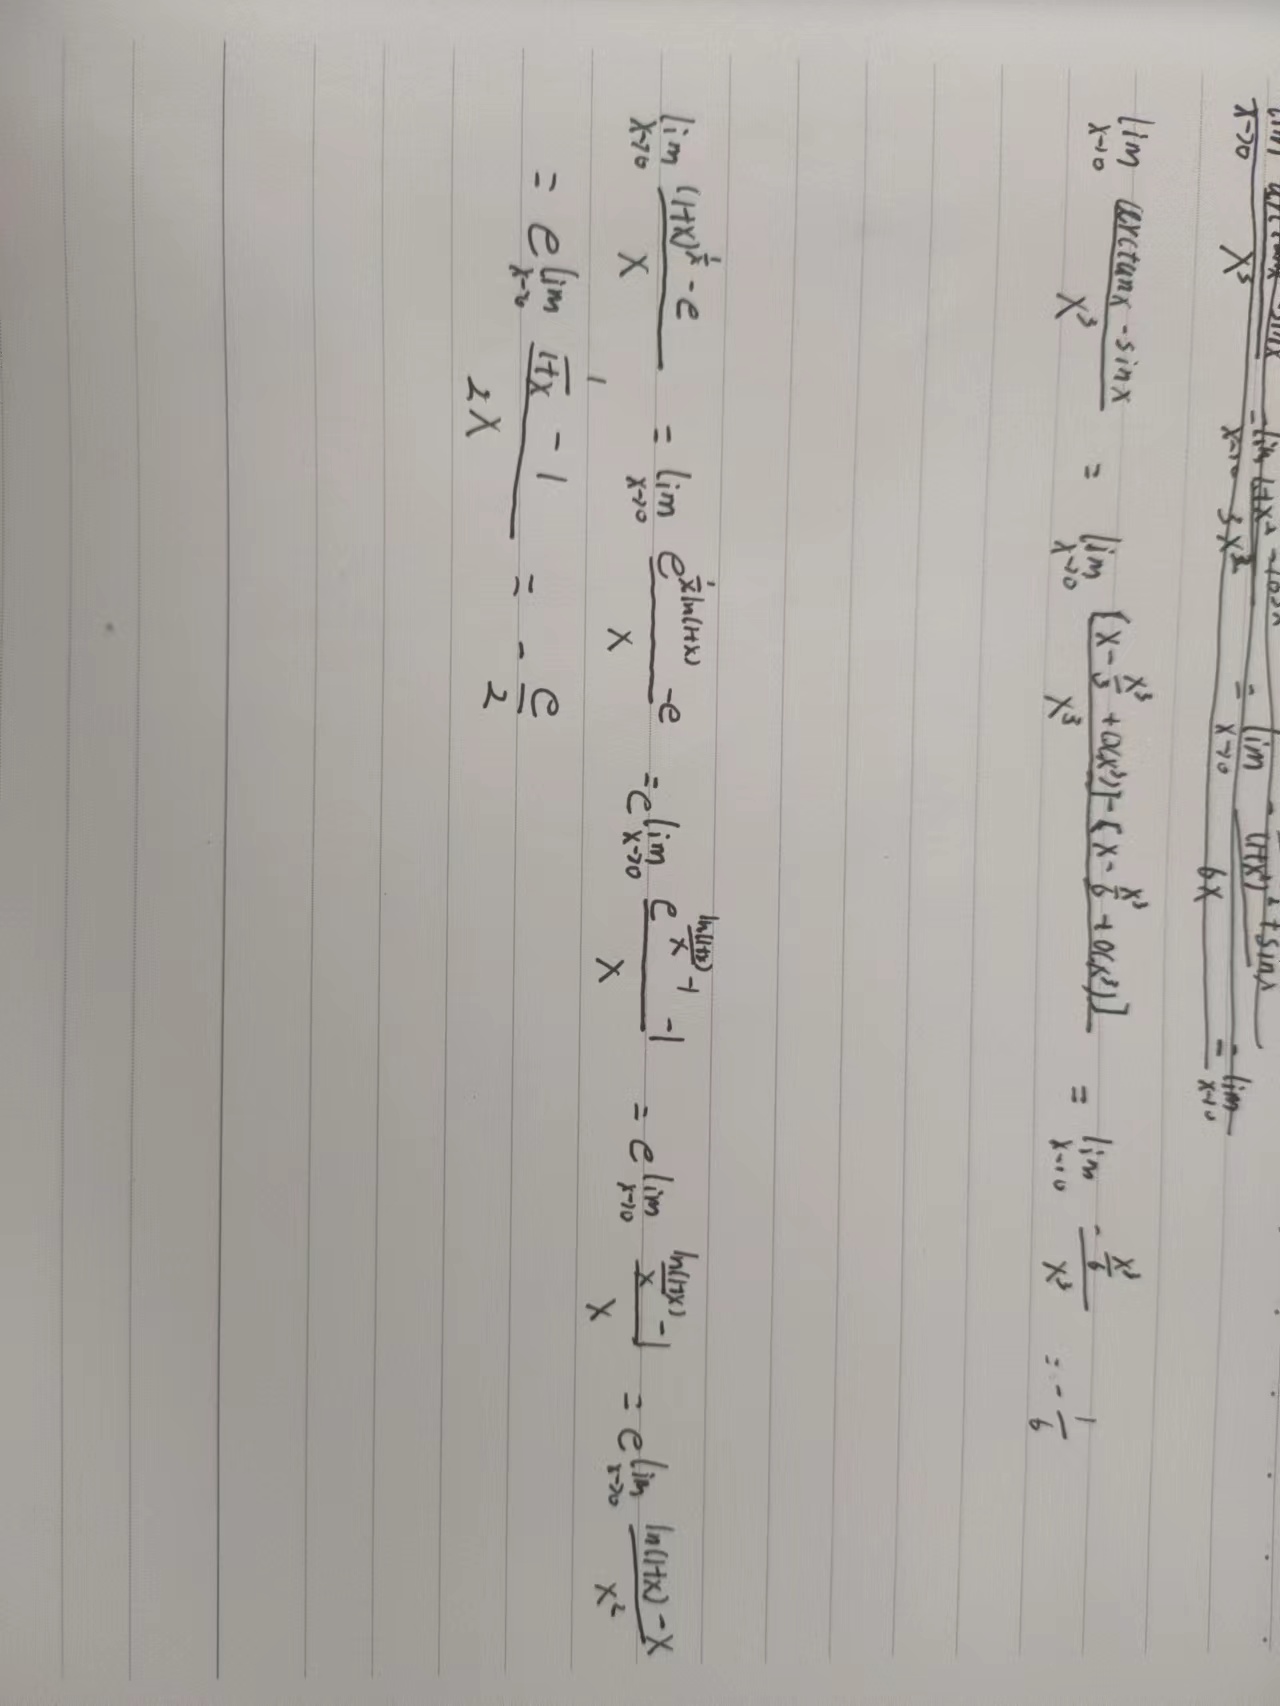 lim x→0 (arctanx - sinx)/x³ = lim x→0 (1/(1+x²) - cosx)/3x² = lim x→0 (-2x/(1+x²)² + sinx)/6x = lim x→0
lim x→0 (arctanx - sinx)/x³ = lim x→0 ([x - x³/3 + o(x³)] - [x - x³/6 + o(x³)])/x³ = lim x→0 (-x³/6)/x³ = -1/6
lim x→0 ((1+x)^(1/x) - e)/x = lim x→0 (e^(1/x ln(1+x)) - e)/x = e lim x→0 (e^(ln(1+x)/x - 1) - 1)/x = e lim x→0 (ln(1+x)/x - 1)/x = e lim x→0 (ln(1+x) - x)/x²
= e lim x→0 (1/(1+x) - 1)/2x = -e/2